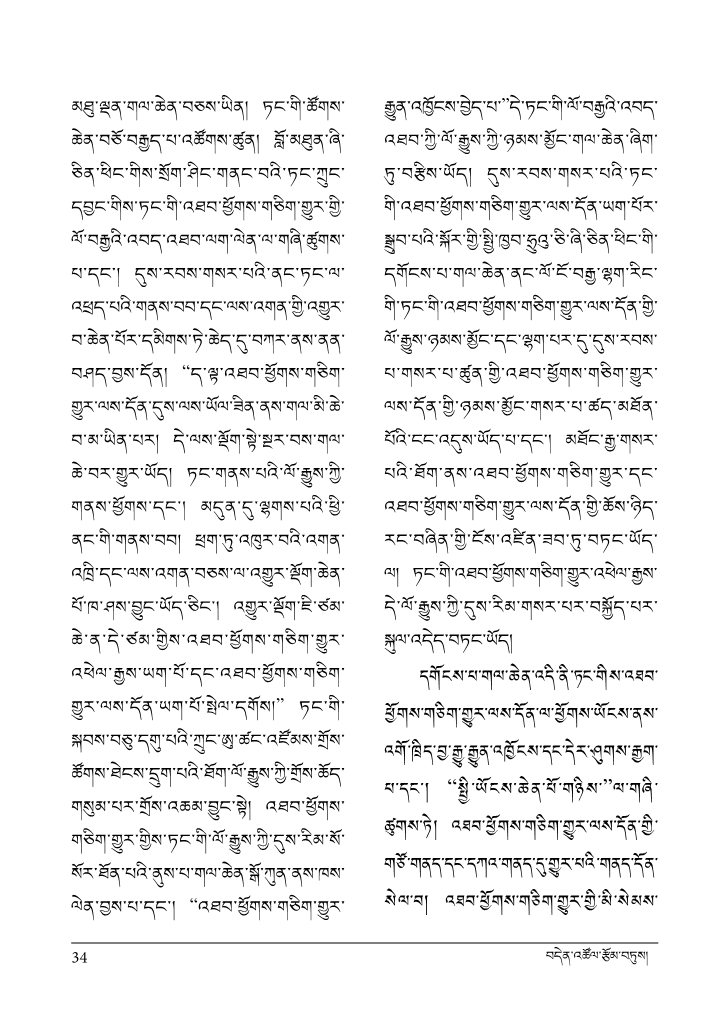 མཐུ་ལྡན་གལ་ཆེན་བཅས་ཡིན། ཏང་གི་ཚོགས་
ཆེན་བཅོ་བརྒྱད་པ་འཚོགས་ཚུན། བློ་མཐུན་ཞི་
ཅིན་ཕིང་གིས་སྲོག་ཤིང་གནང་བའི་ཏང་ཀྲུང་
དབྱང་གིས་ཏང་གི་འཐབ་ཕྱོགས་གཅིག་གྱུར་གྱི་
ལོ་བརྒྱའི་འབད་འཐབ་ལག་ལེན་ལ་གཞི་ཚུགས་
པ་དང་། དུས་རབས་གསར་པའི་ནང་ཏང་ལ་
འཕྲད་པའི་གནས་བབ་དང་ལས་འགན་གྱི་འགྱུར་
བ་ཆེན་པོར་དམིགས་ཏེ་ཆེད་དུ་བཀར་ནས་ནན་
བཤད་བྱས་དོན། “ད་ལྟ་འཐབ་ཕྱོགས་གཅིག་
གྱུར་ལས་དོན་དུས་ལས་ཡོལ་ཟིན་ནས་གལ་མི་ཆེ་
བ་མ་ཡིན་པར། དེ་ལས་ལྡོག་སྟེ་སྔར་བས་གལ་
ཆེ་བར་གྱུར་ཡོད། ཏང་གནས་པའི་ལོ་རྒྱུས་ཀྱི་
གནས་ཕྱོགས་དང་། མདུན་དུ་ལྷགས་པའི་ཕྱི་
ནང་གི་གནས་བབ། ཕྲག་ཏུ་འཁུར་བའི་འགན་
འཁྲི་དང་ལས་འགན་བཅས་ལ་འགྱུར་ལྡོག་ཆེན་
པོ་ཁ་ཤས་བྱུང་ཡོད་ཅིང་། འགྱུར་ལྡོག་ཇི་ཙམ་
ཆེ་ན་དེ་ཙམ་གྱིས་འཐབ་ཕྱོགས་གཅིག་གྱུར་
འཕེལ་རྒྱས་ཡག་པོ་དང་འཐབ་ཕྱོགས་གཅིག་
གྱུར་ལས་དོན་ཡག་པོ་སྤེལ་དགོས།” ཏང་གི་
སྐབས་བཅུ་དགུ་པའི་ཀྲུང་ཨུ་ཚང་འཛོམས་གྲོས་
ཚོགས་ཐེངས་དྲུག་པའི་ཐོག་ལོ་རྒྱུས་ཀྱི་གྲོས་ཆོད་
གསུམ་པར་གྲོས་འཆམ་བྱུང་སྟེ། འཐབ་ཕྱོགས་
གཅིག་གྱུར་གྱིས་ཏང་གི་ལོ་རྒྱུས་ཀྱི་དུས་རིམ་སོ་
སོར་ཐོན་པའི་ནུས་པ་གལ་ཆེན་སྒོ་ཀུན་ནས་ཁས་
ལེན་བྱས་པ་དང་། “འཐབ་ཕྱོགས་གཅིག་གྱུར་
རྒྱུན་འཁྱོངས་བྱེད་པ་”དེ་ཏང་གི་ལོ་བརྒྱའི་འབད་
འཐབ་ཀྱི་ལོ་རྒྱུས་ཀྱི་ཉམས་མྱོང་གལ་ཆེན་ཞིག་
ཏུ་བརྩིས་ཡོད། དུས་རབས་གསར་པའི་ཏང་
གི་འཐབ་ཕྱོགས་གཅིག་གྱུར་ལས་དོན་ཡག་པོར་
སྒྲུབ་པའི་སྐོར་གྱི་སྤྱི་ཁྱབ་ཧྲུའུ་ཅི་ཞི་ཅིན་ཕིང་གི་
དགོངས་པ་གལ་ཆེན་ནང་ལོ་ངོ་བརྒྱ་ལྷག་རིང་
གི་ཏང་གི་འཐབ་ཕྱོགས་གཅིག་གྱུར་ལས་དོན་གྱི་
ལོ་རྒྱུས་ཉམས་མྱོང་དང་ལྷག་པར་དུ་དུས་རབས་
པ་གསར་པ་ཚུན་གྱི་འཐབ་ཕྱོགས་གཅིག་གྱུར་
ལས་དོན་གྱི་ཉམས་མྱོང་གསར་པ་ཚད་མཐོན་
པོའི་ངང་འདུས་ཡོད་པ་དང་། མཐོང་རྒྱ་གསར་
པའི་ཐོག་ནས་འཐབ་ཕྱོགས་གཅིག་གྱུར་དང་
འཐབ་ཕྱོགས་གཅིག་གྱུར་ལས་དོན་གྱི་ཆོས་ཉིད་
རང་བཞིན་གྱི་ངོས་འཛིན་ཟབ་ཏུ་བཏང་ཡོད་
ལ། ཏང་གི་འཐབ་ཕྱོགས་གཅིག་གྱུར་འཕེལ་རྒྱས་
དེ་ལོ་རྒྱུས་ཀྱི་དུས་རིམ་གསར་པར་བསྐྱོད་པར་
སྐུལ་འདེད་བཏང་ཡོད།
དགོངས་པ་གལ་ཆེན་འདི་ནི་ཏང་གིས་འཐབ་
ཕྱོགས་གཅིག་གྱུར་ལས་དོན་ལ་ཕྱོགས་ཡོངས་ནས་
འགོ་ཁྲིད་བྱ་རྒྱུ་རྒྱུན་འཁྱོངས་དང་དེར་ཤུགས་རྒྱག་
པ་དང་། “སྤྱི་ཡོངས་ཆེན་པོ་གཉིས་”ལ་གཞི་
ཚུགས་ཏེ། འཐབ་ཕྱོགས་གཅིག་གྱུར་ལས་དོན་གྱི་
གཙོ་གནད་དང་དཀའ་གནད་དུ་གྱུར་པའི་གནད་དོན་
སེལ་བ། འཐབ་ཕྱོགས་གཅིག་གྱུར་གྱི་མི་སེམས་
34
བདེན་འཚོལ་རྩོམ་བཏུས།